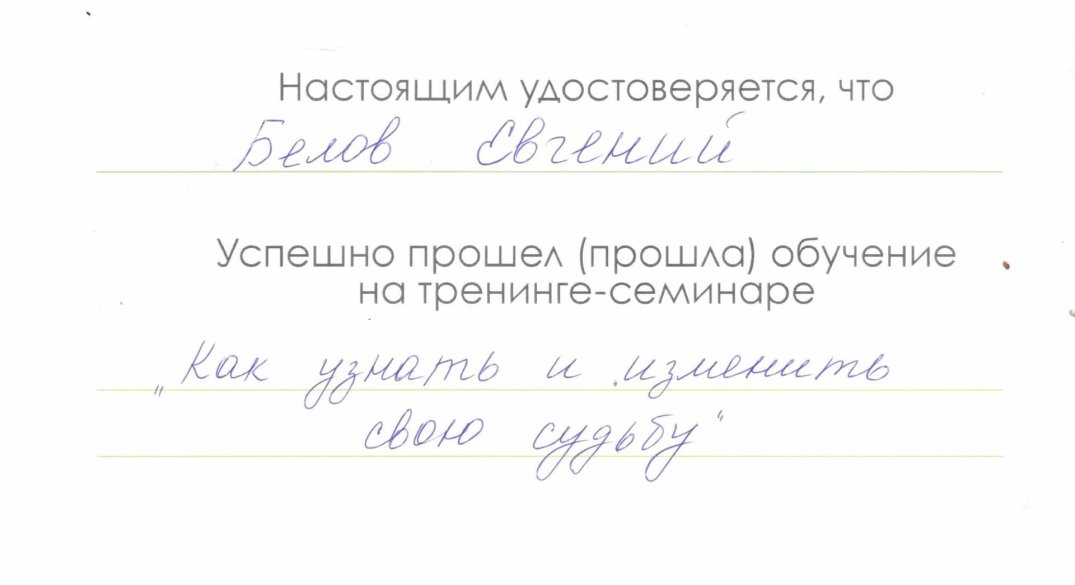 Настоящим удостоверяется, что
Белов Евгений
Успешно прошел (прошла) обучение
на тренинге-семинаре
„Как узнать и изменить
свою судьбу“